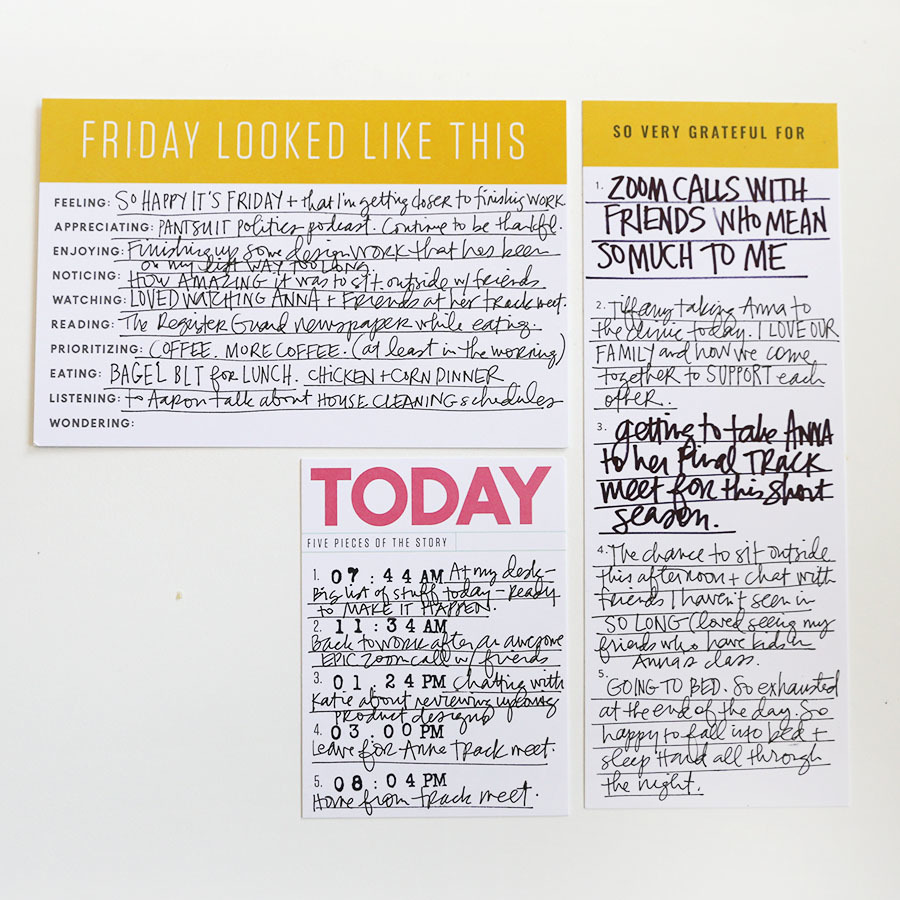 FRIDAY LOOKED LIKE THIS
FEELING: SO HAPPY IT'S FRIDAY + that I'm getting closer to finishing work
APPRECIATING: PANTSUIT politics podcast. Continue to be thankful.
ENJOYING: Finishing up some design work that has been
on my list WAY TOO LONG.
NOTICING: HOW AMAZING it was to sit outside w/ friends.
WATCHING: LOVED WATCHING ANNA + Friends at her track meet.
READING: The Register Guard newspaper while eating.
PRIORITIZING: COFFEE. MORE COFFEE. (at least in the morning)
EATING: BAGEL BLT for LUNCH. CHICKEN + CORN DINNER
LISTENING: to Aaron talk about HOUSE CLEANING schedules
WONDERING:
SO VERY GRATEFUL FOR
1. ZOOM CALLS WITH
FRIENDS WHO MEAN
SO MUCH TO ME
2. Tiffany taking Anna to
the clinic today. I LOVE OUR
FAMILY and how we come
together to SUPPORT each
other.
3. getting to take ANNA
to her Final TRACK
meet for this short
season.
4. The chance to sit outside
this afternoon + chat with
friends I haven't seen in
SO LONG (loved seeing my
friends who have kids in
Anna's class.
5. GOING TO BED. So exhausted
at the end of the day. So
happy to fall into bed +
sleep hard all through
the night.
TODAY
FIVE PIECES OF THE STORY
1. 07:44 AM At my desk -
Big list of stuff today - ready
to MAKE IT HAPPEN.
2. 11:34 AM
Back to work after an awesome
EPIC zoom call w/ friends
3. 01.24 PM Chatting with
Katie about reviewing upcoming
product designs
4. 03.00 PM
Leave for Anna TRACK meet.
5. 08:04 PM
Home from track meet.